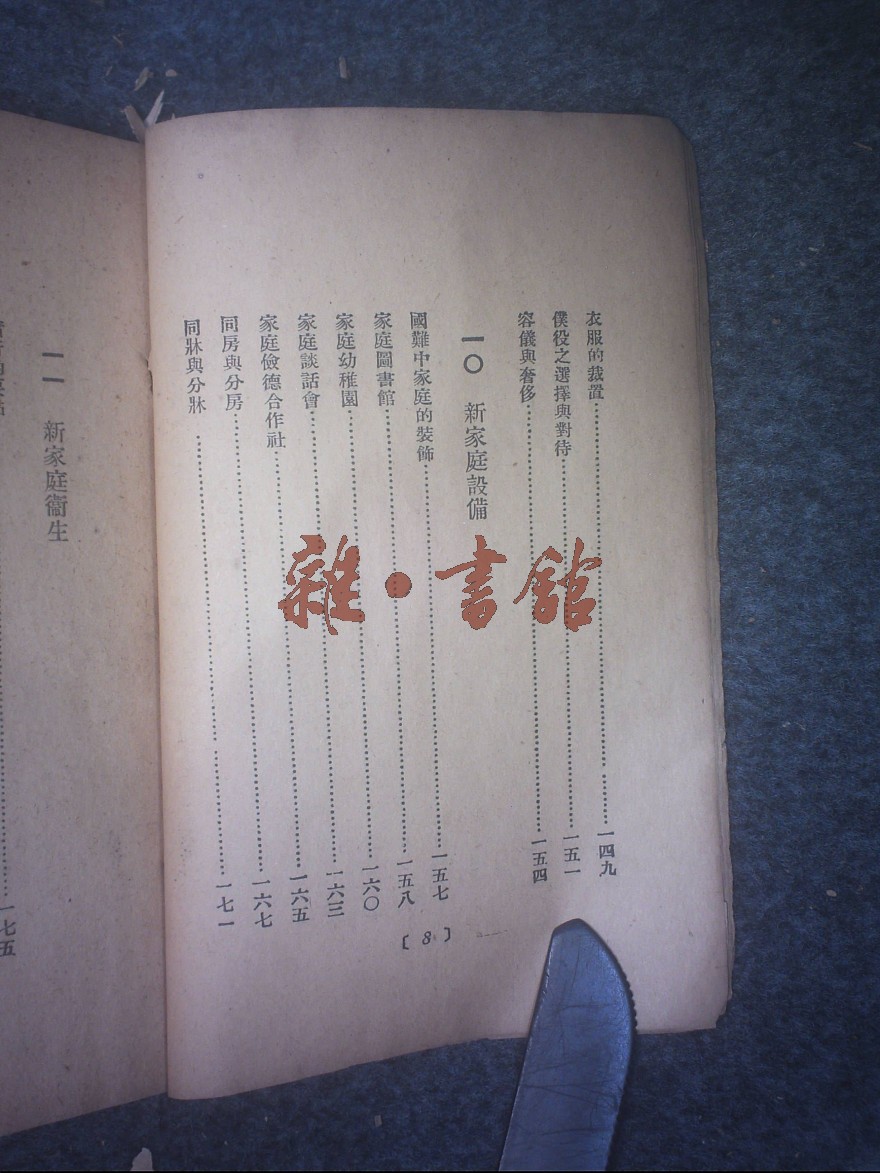 衣服的裁置……一四九
僕役之選擇與對待……一五一
容儀與奢侈……一五四
一〇 新家庭設備
國難中家庭的裝飾……一五七
家庭圖書館……一五八
家庭幼稚園……一六〇
家庭談話會……一六三
家庭儉德合作社……一六五
同房與分房……一六七
同牀與分牀……一七一
〔8〕
一一 新家庭衞生
……一七五
雜•書館